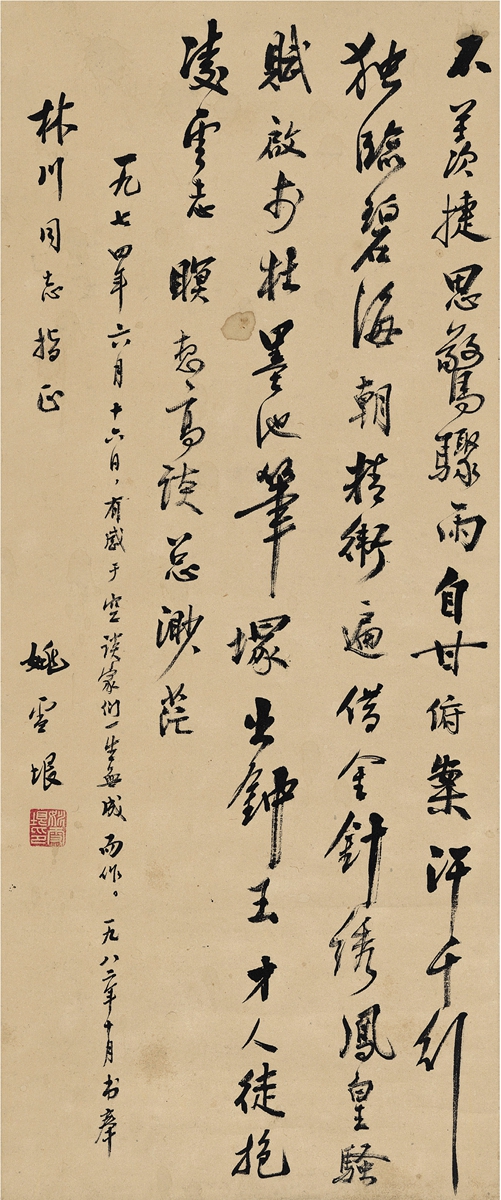 不羡捷思惊骤雨自甘俯案汗千行
独临碧海朝精卫遍借金针绣凤皇骚
赋启方壮墨池笔塚出钟王才人徒抱
凌云志瞑想高谈总渺茫
一九七四年六月十六日，有感于空谈家们一生无成而作。一九八二年十月书奉
林川同志指正
姚雪垠
姚雪垠印